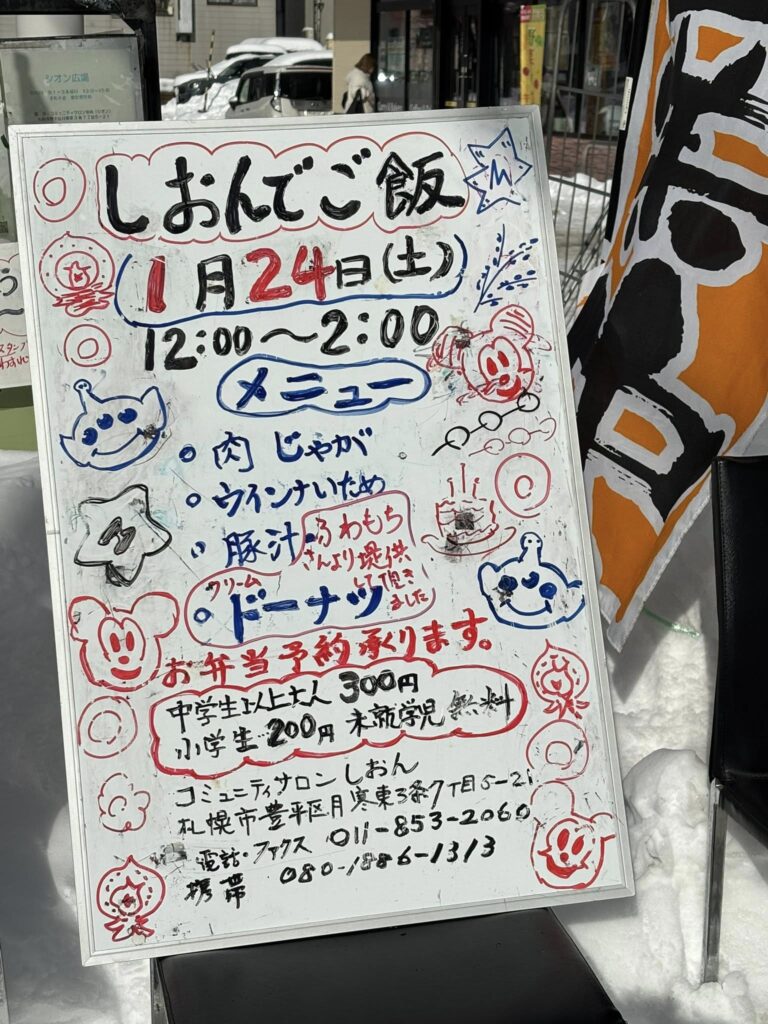 シオン広場
しおんでご飯
1月24日(土)
12:00〜2:00
メニュー
肉じゃが
ウインナいため
豚汁
ふわもち
さんより提供
して頂き
ました
クリーム
ドーナツ
お弁当予約承ります。
中学生以上大人 300円
小学生 200円 未就学児 無料
コミュニティサロンしおん
札幌市豊平区月寒東3条7丁目5-21
電話・ファクス 011-853-2060
携帯 080-1886-1313
M
スタンプ